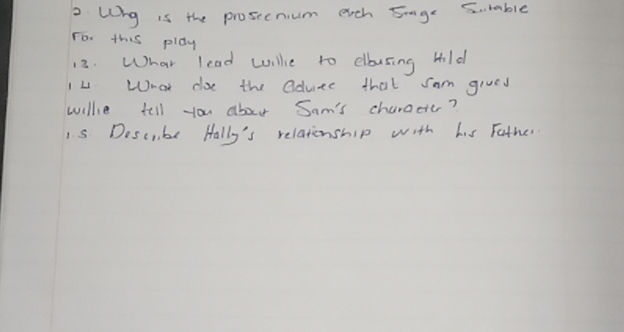 2. Why is the proscenium arch Stage Suitable
For this play
1.3. What lead Willie to abusing Hild
1.4 What doe the advice that Sam gives
Willie tell you about Sam's character?
1.5 Describe Hally's relationship with his Father.